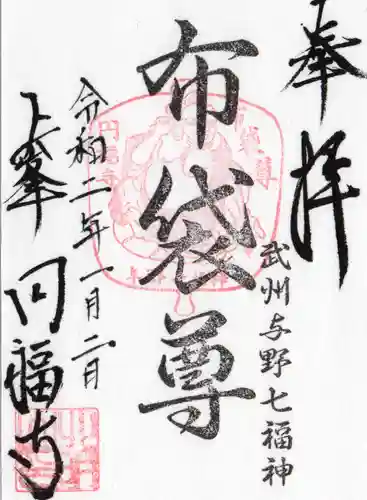 奉拝
武州与野七福神
布袋尊
令和二年一月二日
上峯
円福寺